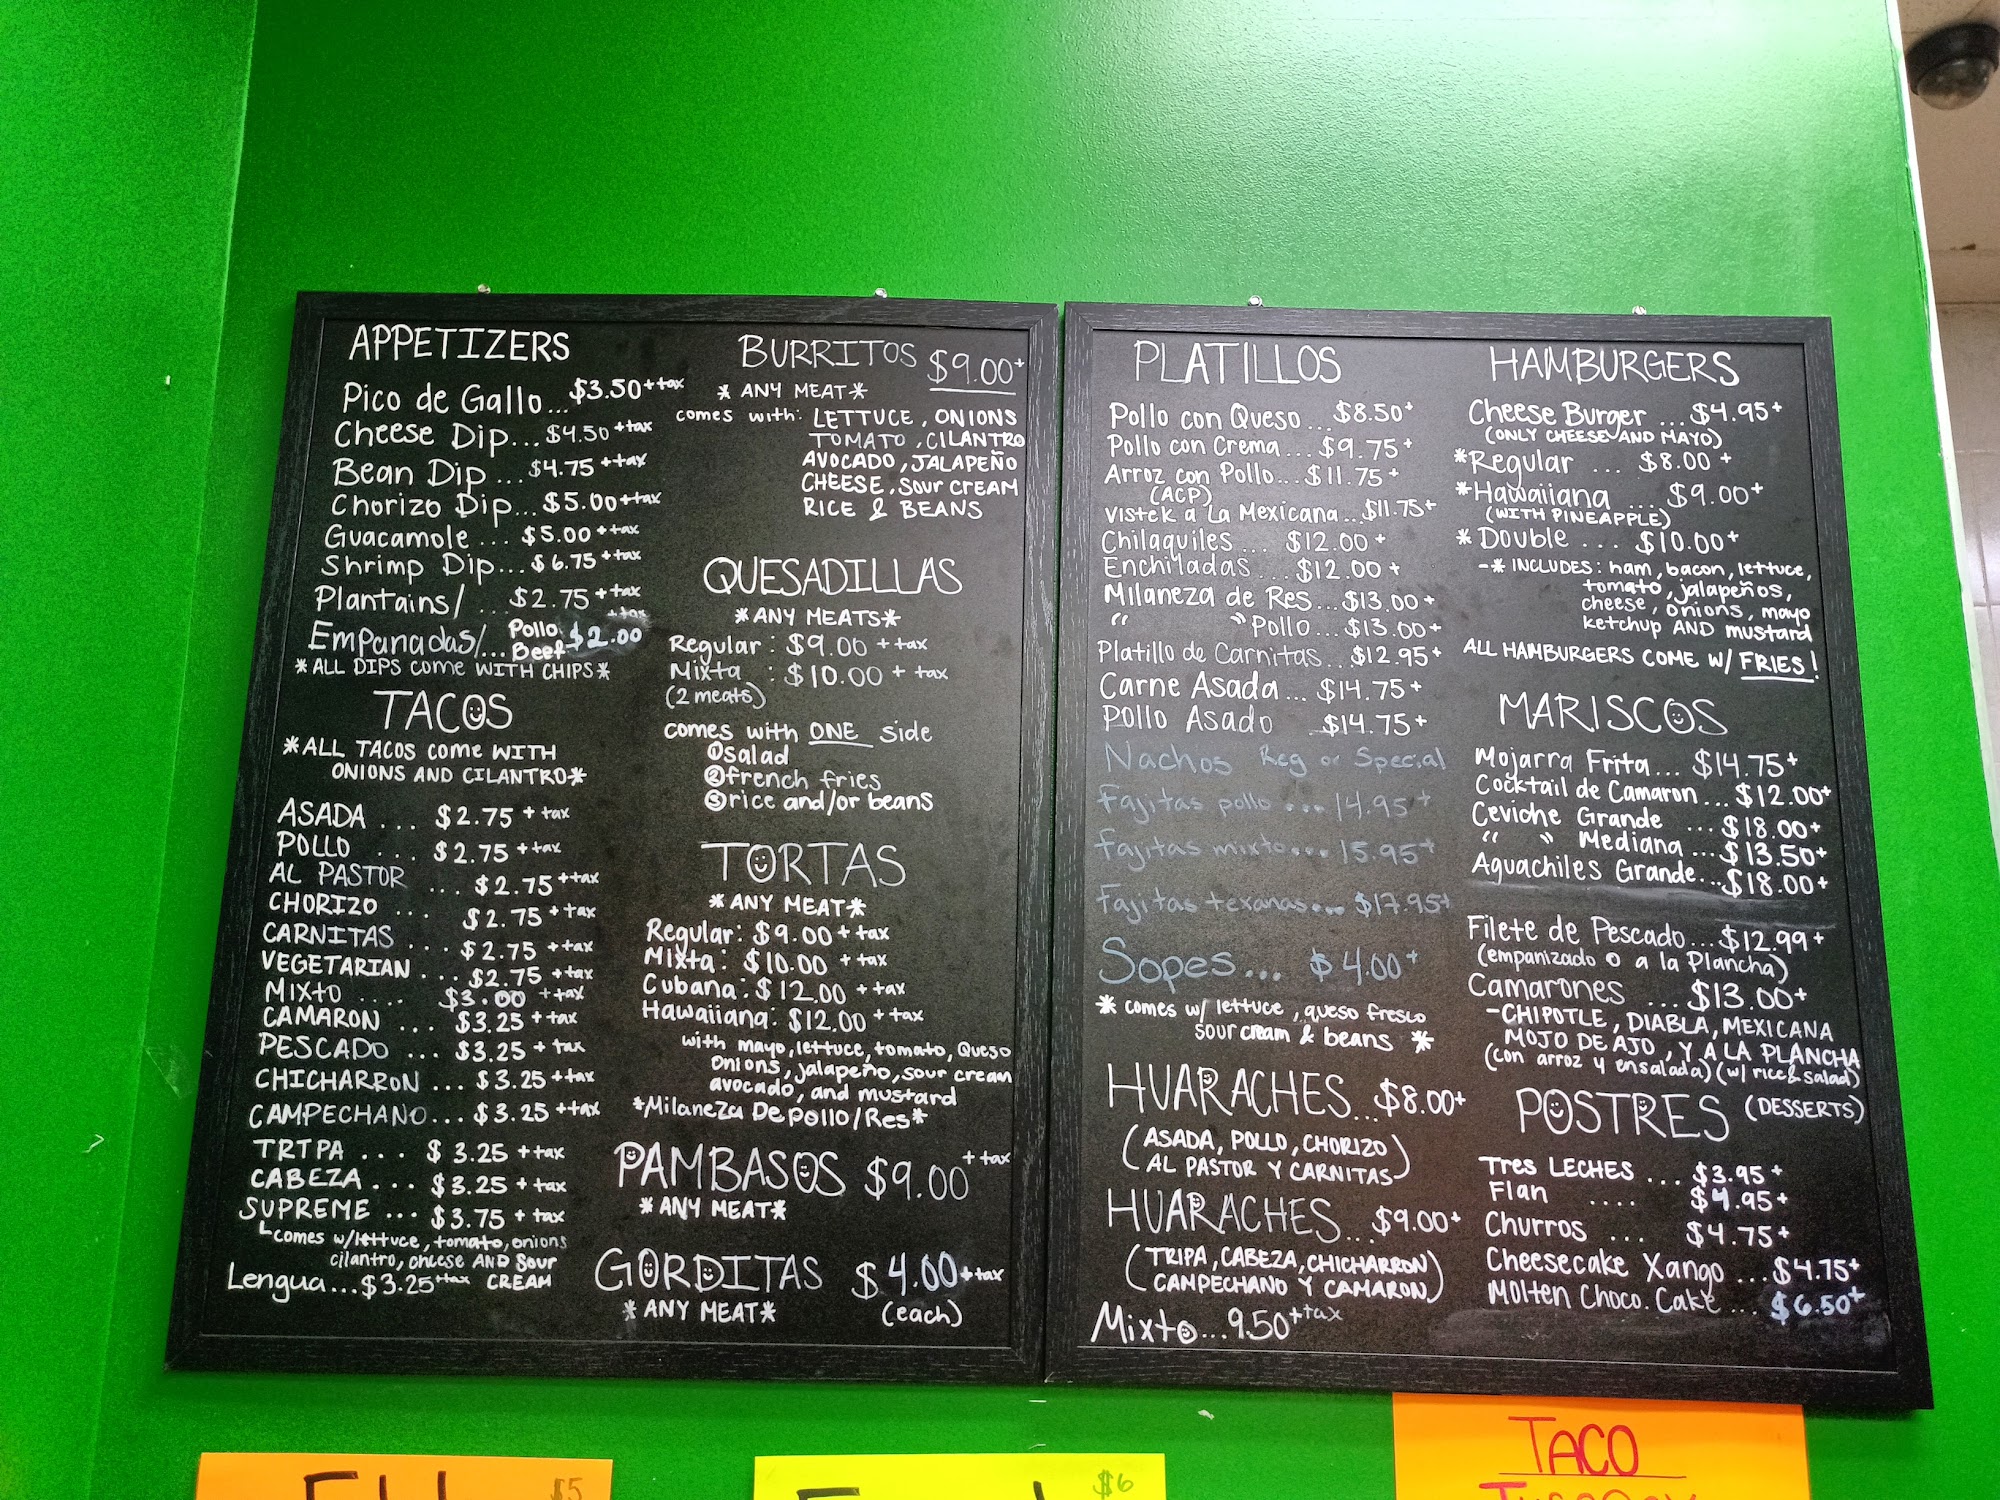 APPETIZERS
Pico de Gallo... $3.50++tax
Cheese Dip... $4.50++tax
Bean Dip... $4.75++tax
Chorizo Dip... $5.00++tax
Guacamole ... $5.00++tax
Shrimp Dip... $6.75++tax
Plantains/ ... $2.75++tax
++tax
Empanadas/... Pollo Beef $2.00
*ALL DIPS come WITH CHIPS*
TACOS
*ALL TACOS come WITH
ONIONS AND CILANTRO*
ASADA ... $2.75 ++tax
POLLO ... $2.75 ++tax
AL PASTOR ... $2.75++tax
CHORIZO ... $2.75 ++tax
CARNITAS ... $2.75 ++tax
VEGETARIAN ... $2.75 ++tax
MIXTO .... $3.00 ++tax
CAMARON ... $3.25 ++tax
PESCADO ... $3.25 + tax
CHICHARRON ... $3.25 ++tax
CAMPECHANO... $3.25 ++tax
TRIPA ... $3.25 ++tax
CABEZA ... $3.25 ++tax
SUPREME ... $3.75 ++tax
comes w/lettuce, tomato, onions
cilantro, cheese AND sour
CREAM
Lengua...$3.25++tax
BURRITOS $9.00+
* ANY MEAT*
comes with: LETTUCE, ONIONS
TOMATO, CILANTRO
AVOCADO, JALAPEÑO
CHEESE, SOUR CREAM
RICE & BEANS
QUESADILLAS
*ANY MEATS*
Regular: $9.00 ++tax
Mixta : $10.00 ++ tax
(2 meats)
comes with ONE side
①salad
②french fries
③rice and/or beans
TORTAS
*ANY MEAT*
Regular: $9.00 ++tax
Mixta: $10.00 ++tax
Cubana: $12.00 ++tax
Hawaiiana: $12.00 ++tax
with mayo, lettuce, tomato, Queso
onions, jalapeño, sour cream
avocado, and mustard
*Milaneza De Pollo/Res*
PAMBASOS $9.00 ++tax
*ANY MEAT*
GORDITAS $4.00++tax
*ANY MEAT* (each)
PLATILLOS
Pollo con Queso ... $8.50+
Pollo con Crema ... $9.75+
Arroz con Pollo... $11.75+
(ACP)
Vistek a La Mexicana ...$11.75+
Chilaquiles ... $12.00+
Enchiladas ... $12.00+
Milaneza de Res... $13.00+
" " Pollo... $13.00+
Platillo de Carnitas... $12.95+
Carne Asada ... $14.75+
Pollo Asado $14.75+
Nachos Reg or Special
Fajitas pollo ... 14.95+
Fajitas mixto... 15.95+
Fajitas texanas... $17.95+
Sopes... $4.00+
* comes w/ lettuce, queso fresco
sour cream & beans *
HUARACHES... $8.00+
(ASADA, POLLO, CHORIZO
AL PASTOR Y CARNITAS)
HUARACHES... $9.00+
(TRIPA, CABEZA, CHICHARRON
CAMPECHANO Y CAMARON)
Mixto...9.50++tax
HAMBURGERS
Cheese Burger ... $4.95+
(ONLY CHEESE AND MAYO)
*Regular ... $8.00+
*Hawaiiana ... $9.00+
(WITH PINEAPPLE)
* Double ... $10.00+
-* INCLUDES: ham, bacon, lettuce,
tomato, jalapeños,
cheese, onions, mayo
ketchup AND mustard
ALL HAMBURGERS COME W/ FRIES!
MARISCOS
Mojarra Frita ... $14.75+
Cocktail de Camaron ... $12.00+
Ceviche Grande ... $18.00+
" " Mediana ... $13.50+
Aguachiles Grande... $18.00+
Filete de Pescado ... $12.99+
(empanizado o a la Plancha)
Camarones ... $13.00+
-CHIPOTLE, DIABLA, MEXICANA
MOJO DE AJO, Y A LA PLANCHA
(con arroz y ensalada) (w/ rice & salad)
POSTRES (DESSERTS)
Tres LECHES ... $3.95+
Flan .... $4.95+
Churros ... $4.75+
Cheesecake Xango ... $4.75+
Molten Choco. Cake ... $6.50+
$5
$6
TACO
TUESDAY